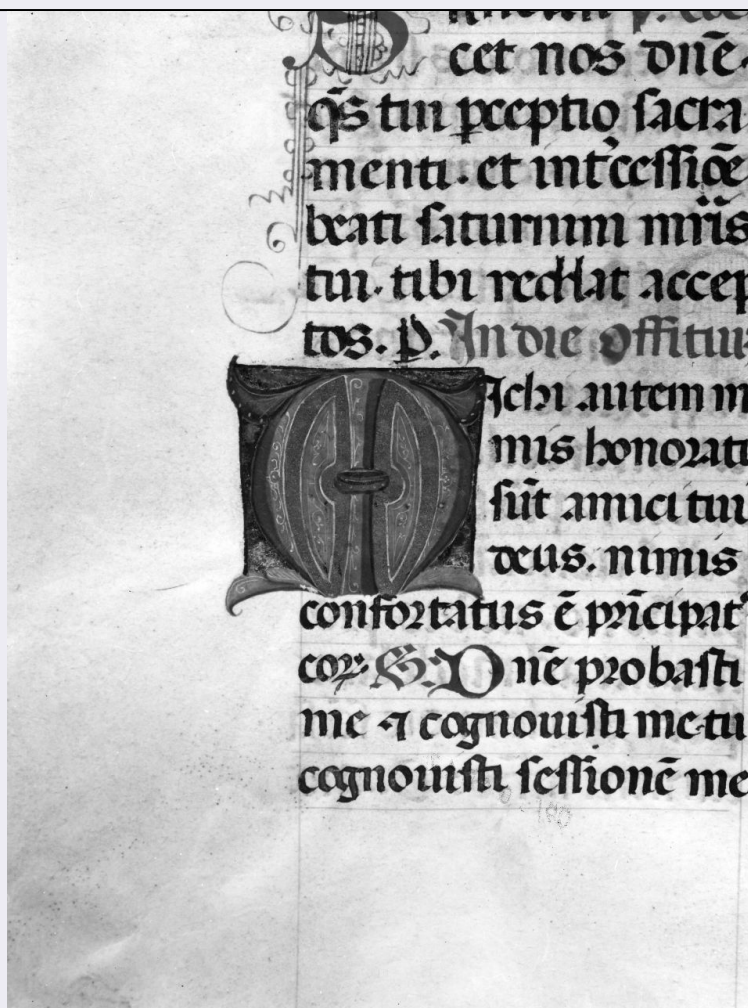 cet nos dn̄e.
q̄s tui ꝑceptio sacra
menti. et int̉cessiōe
beati saturnini mr̄is
tui. tibi reddat accep
tos. p̱. In die offitiu
MIchi autem ni
mis honorati
sūt amici tui
deus. nimis
confortatus ē prīcipat᾽
coꝝ. S. Dn̄e probasti
me ⁊ cognouisti me tu
cognouisti sessionē me